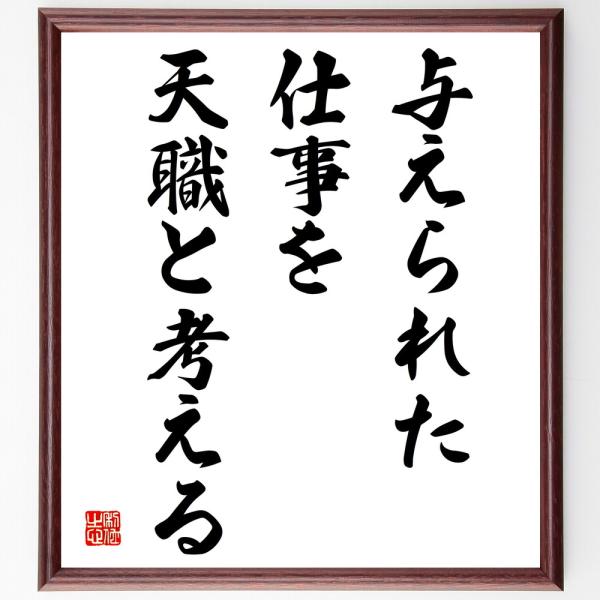 与えられた
仕事を
天職と考える